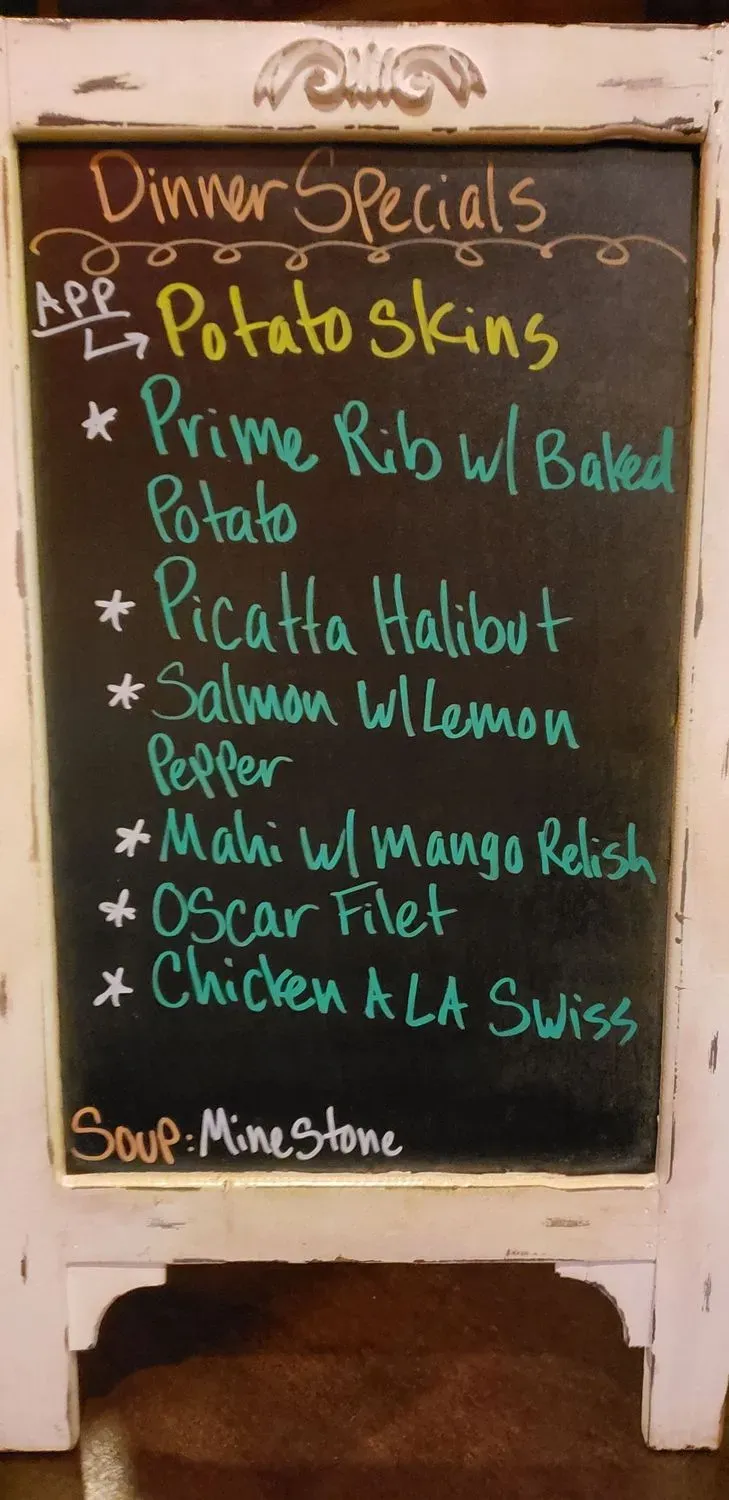 Dinner Specials
APP
Potato skins
* Prime Rib w/ Baked
Potato
* Picatta Halibut
* Salmon w/ Lemon
Pepper
* Mahi w/ Mango Relish
* OScar Filet
* Chicken A LA Swiss
Soup: MineStone